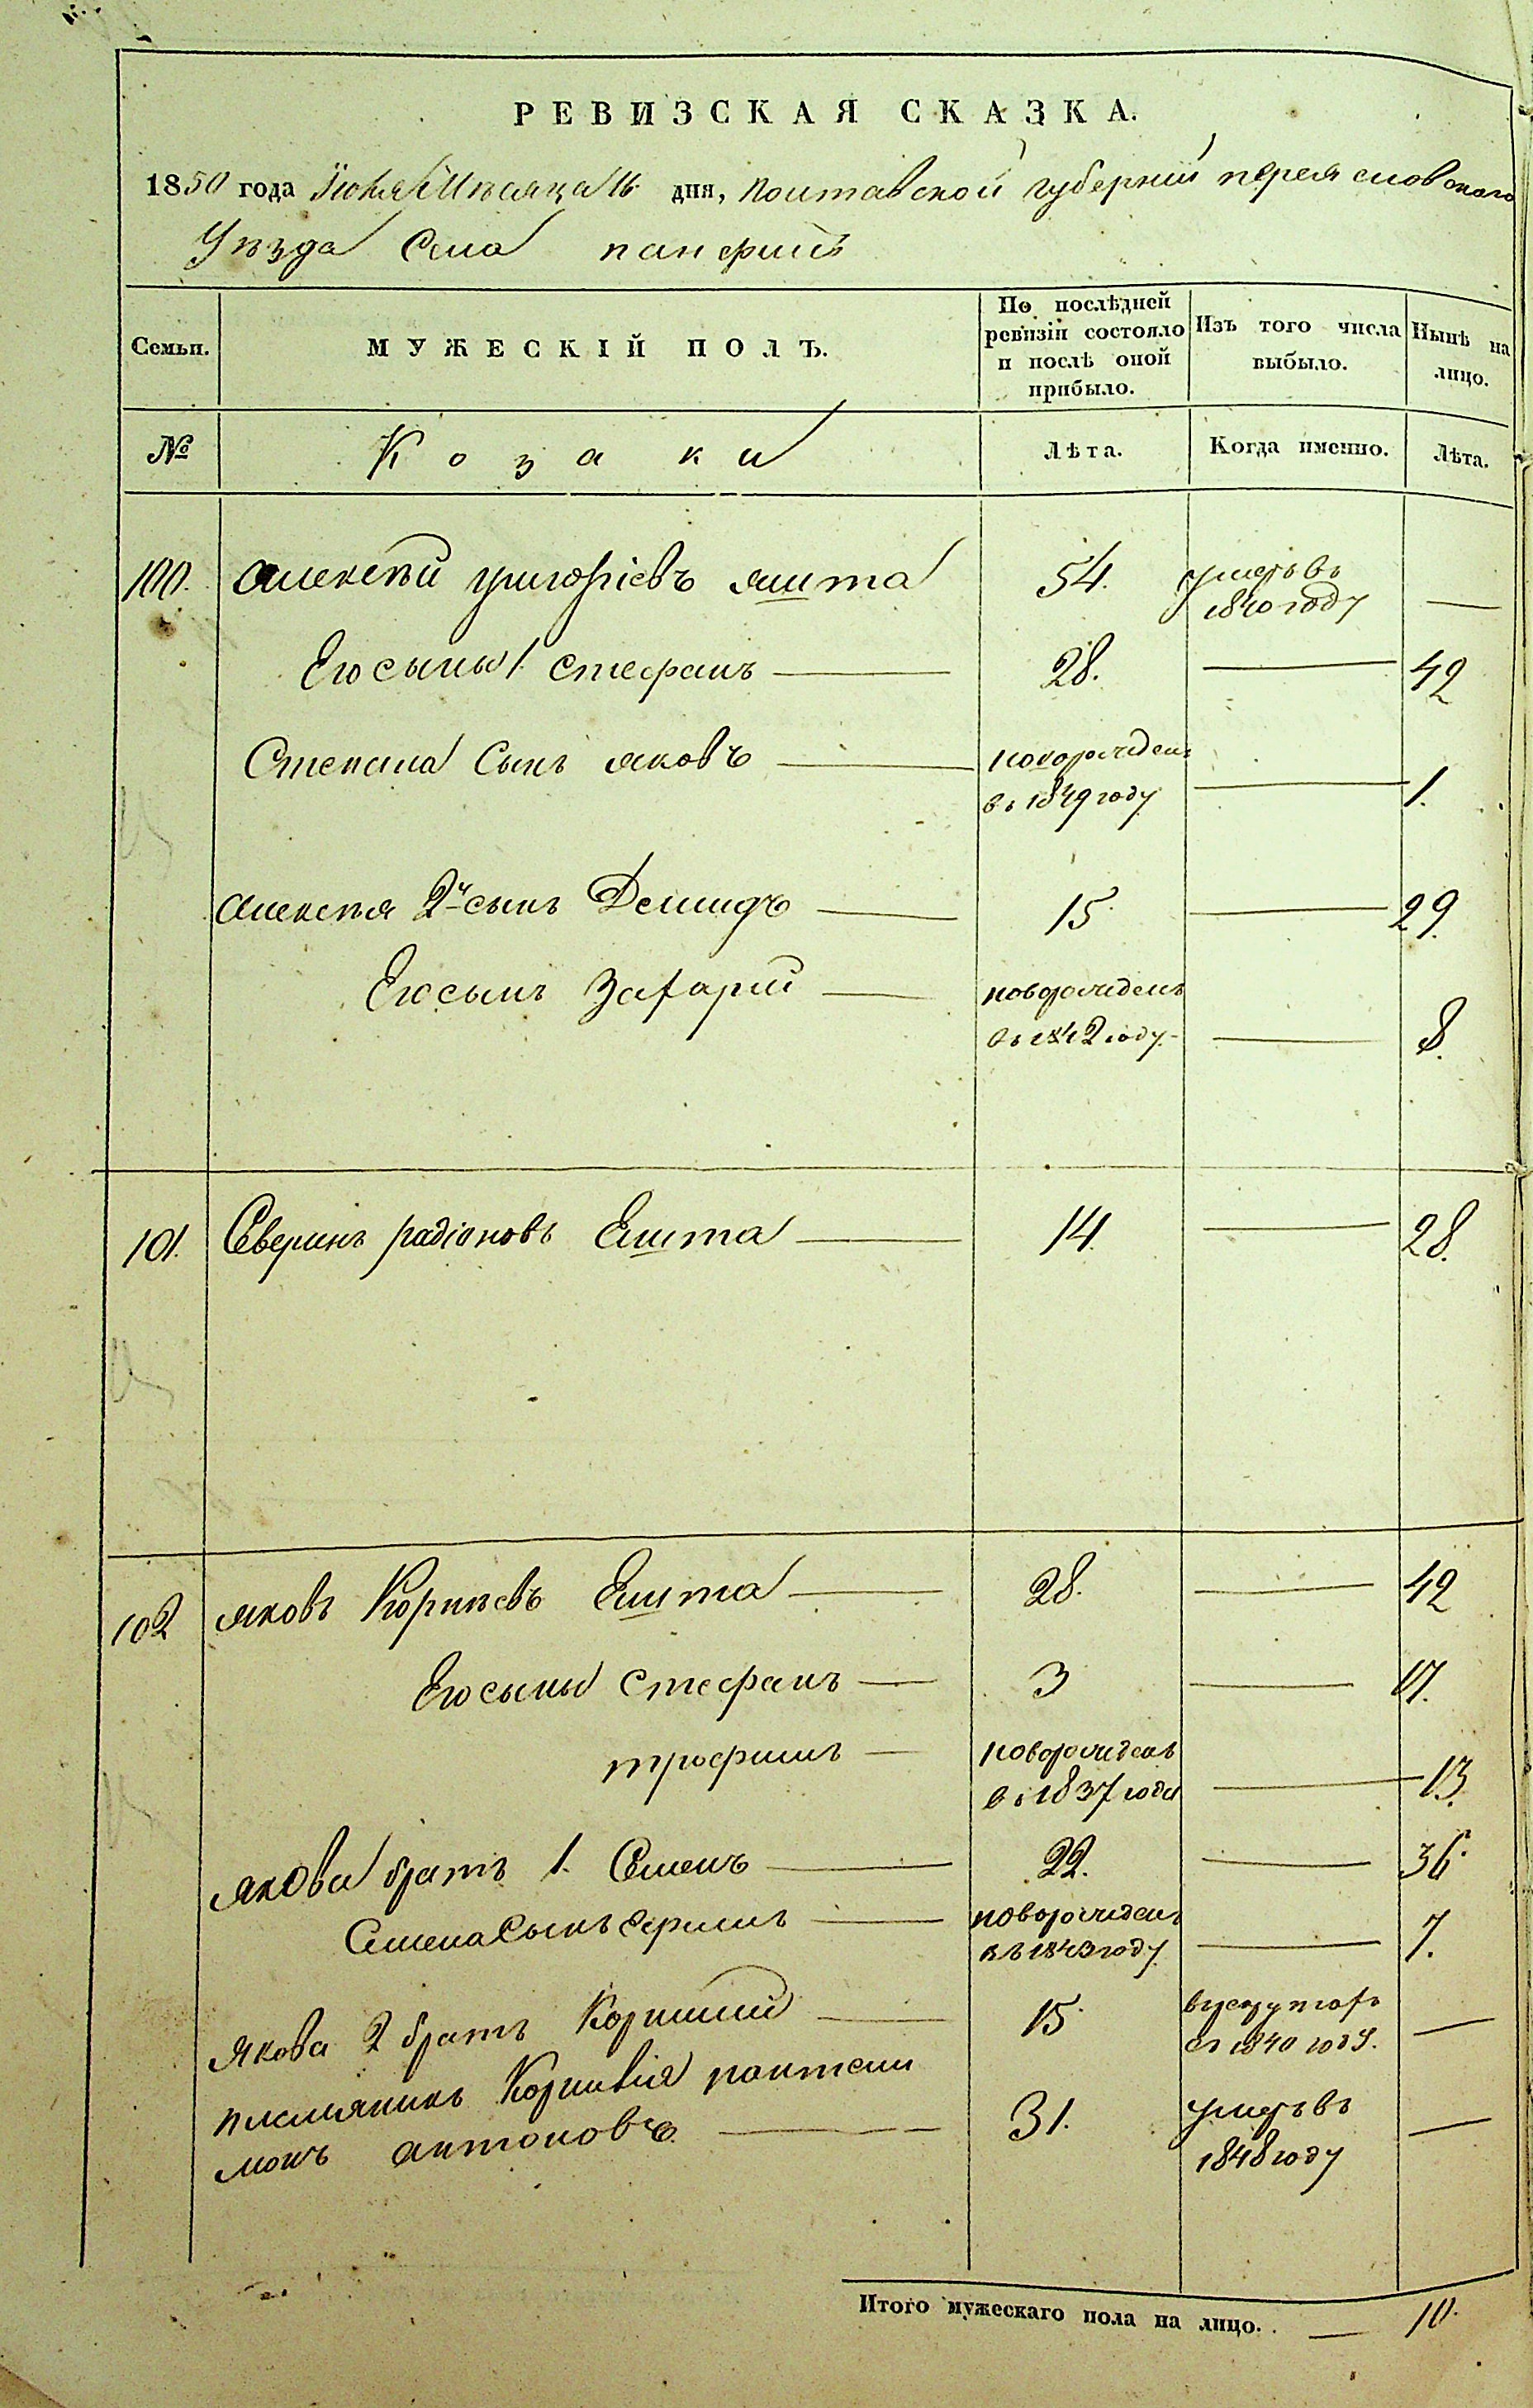 РЕВИЗСКАЯ СКАЗКА.
1850 года Июня Мѣсяца 16 дня, Полтавской губерніи переяславского
Уѣзда Села панфилъ
Семьи.
МУЖЕСКІЙ ПОЛЪ.
По послѣдней
ревизіи состояло
и послѣ оной
прибыло.
Изъ того числа
выбыло.
Нынѣ на
лицо.
№
Козаки
Лѣта.
Когда именно.
Лѣта.
100. Алексѣй григоріевъ ялита 54. умеръ въ
1840 году —
Его сыны 1. Стефанъ — 28. — 42
Степана Сынъ яковъ — новорожденъ
въ 1849 году — 1.
Алексѣя 2й сынъ Демидъ — 15 — 29.
Его сынъ Захарій — новорожденъ
въ 1842 году — 8.
101. Северинъ радіоновъ Елита — 14. — 28.
102 яковъ Корнѣевъ Елита — 28. — 42
Его сыны Стефанъ — 3 — 17.
трофимъ — новорожденъ
въ 1837 года — 13.
якова братъ 1. Семенъ — 22. — 36
Семена Сынъ — новорожденъ
въ 1843 году — 7.
Якова 2 братъ Корнилій — 15 в рекрутахъ
съ 1840 году. —
племяникъ Корнилія пантели
монъ антоновъ — 31. умеръ въ
1848 году —
Итого мужескаго пола на лицо. — 10.